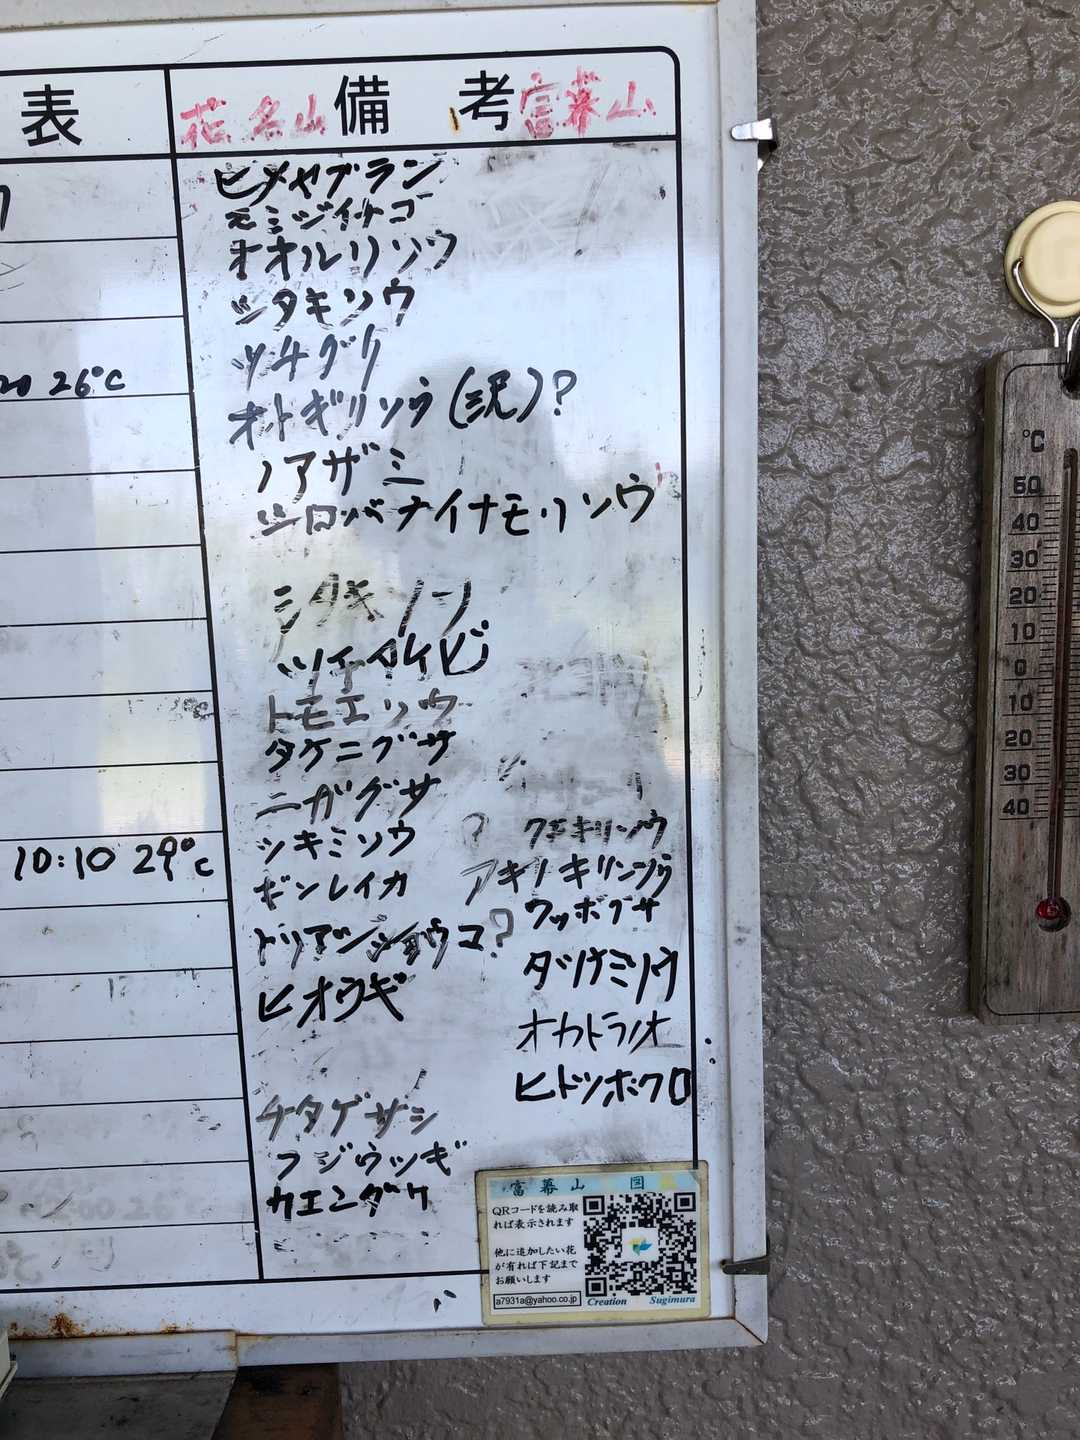 表
備考
花名山 富幕山
ヒメヤブラン
モミジイチゴ
オオルリソウ
シタキソウ
ツチグリ
オトギリソウ(沢)?
ノアザミ
シロバナイナモリソウ
20 26℃
シタキソー
ツチアケビ
トモエソウ
タケニグサ
ニガグサ
シキミソウ
? クキキリンソウ
10:10 29℃
ギンレイカ
アキノキリンソウ
ウツボグサ
トリアシショウマ?
ヒオウギ
オカトラノオ
ヒトツボクロ
チタゲザシ
フジウツギ
カエンダケ
富幕山 図
QRコードを読み取
れば表示されます
他に追加したい花
が有れば下記まで
お願いします
a7931a@yahoo.co.jp
Creation Sugimura
℃
50
40
30
20
10
0
10
20
30
40